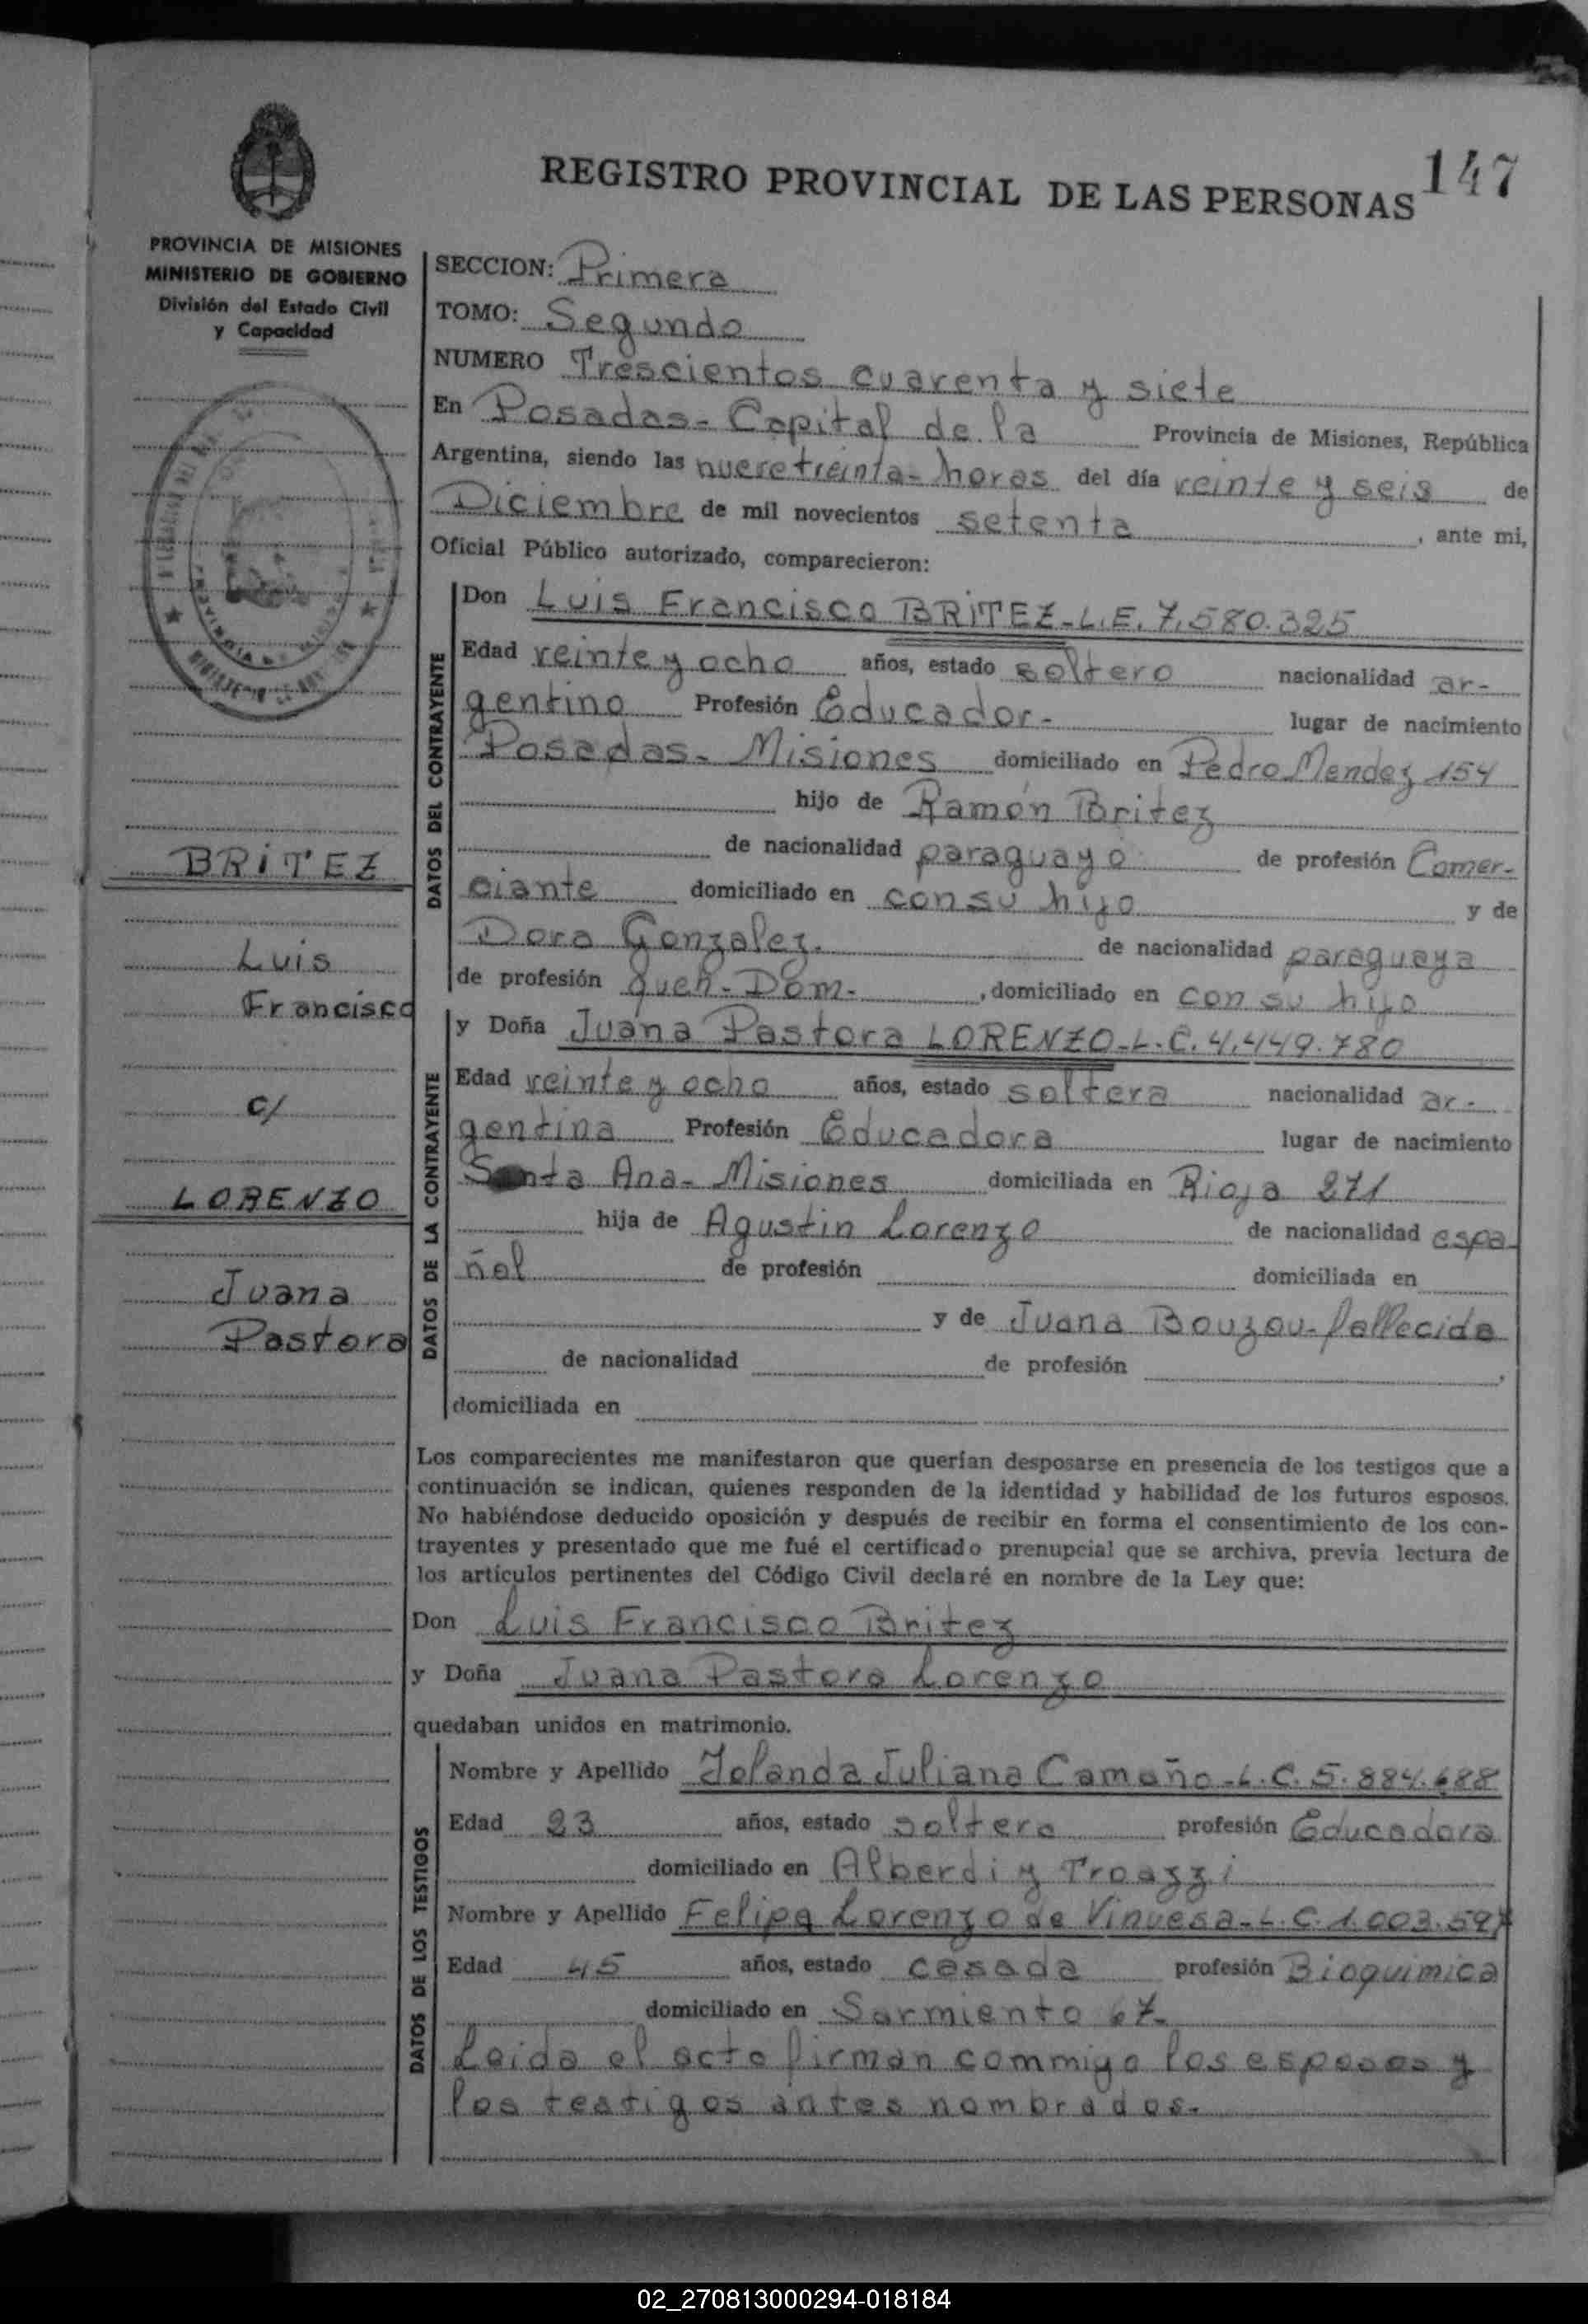 147
REGISTRO PROVINCIAL DE LAS PERSONAS
PROVINCIA DE MISIONES
MINISTERIO DE GOBIERNO
División del Estado Civil
y Capacidad
BRITEZ
Luis
Francisco
c/
LORENZO
Juana
Pastora
SECCION: Primera
TOMO: Segundo
NUMERO Trescientos cuarenta y siete
En Posadas - Capital de la Provincia de Misiones, República
Argentina, siendo las nueve treinta - horas del día veinte y seis de
Diciembre de mil novecientos setenta, ante mi,
Oficial Público autorizado, comparecieron:
DATOS DEL CONTRAYENTE
Don Luis Francisco BRITEZ - L.E. 7.580.325
Edad veinte y ocho años, estado soltero nacionalidad ar-
gentino Profesión Educador - lugar de nacimiento
Posadas - Misiones domiciliado en Pedro Mendez 154
hijo de Ramón Britez
de nacionalidad paraguayo de profesión Comer-
ciante domiciliado en con su hijo y de
Dora Gonzalez. de nacionalidad paraguaya
de profesión Queh - Dom -, domiciliado en con su hijo
DATOS DE LA CONTRAYENTE
y Doña Juana Pastora LORENZO - L.C. 4.449.780
Edad veinte y ocho años, estado soltera nacionalidad ar-
gentina Profesión Educadora lugar de nacimiento
Santa Ana - Misiones domiciliada en Rioja 271
hija de Agustin Lorenzo de nacionalidad espa
ñol de profesión domiciliada en
y de Juana Bouzou - fallecida
de nacionalidad de profesión,
domiciliada en
Los comparecientes me manifestaron que querían desposarse en presencia de los testigos que a
continuación se indican, quienes responden de la identidad y habilidad de los futuros esposos.
No habiéndose deducido oposición y después de recibir en forma el consentimiento de los con-
trayentes y presentado que me fué el certificado prenupcial que se archiva, previa lectura de
los artículos pertinentes del Código Civil declaré en nombre de la Ley que:
Don Luis Francisco Britez
y Doña Juana Pastora Lorenzo
quedaban unidos en matrimonio.
DATOS DE LOS TESTIGOS
Nombre y Apellido Jolanda Juliana Camaño - L.C. 5.884.688
Edad 23 años, estado soltera profesión Educadora
domiciliado en Alberdi y Troazzi
Nombre y Apellido Felipa Lorenzo de Vinuesa - L.C. 1.003.597
Edad 45 años, estado casada profesión Bioquimica
domiciliado en Sarmiento 67 -
Leida el acto firman commigo los esposos y
los testigos antes nombrados.
02_270813000294-018184